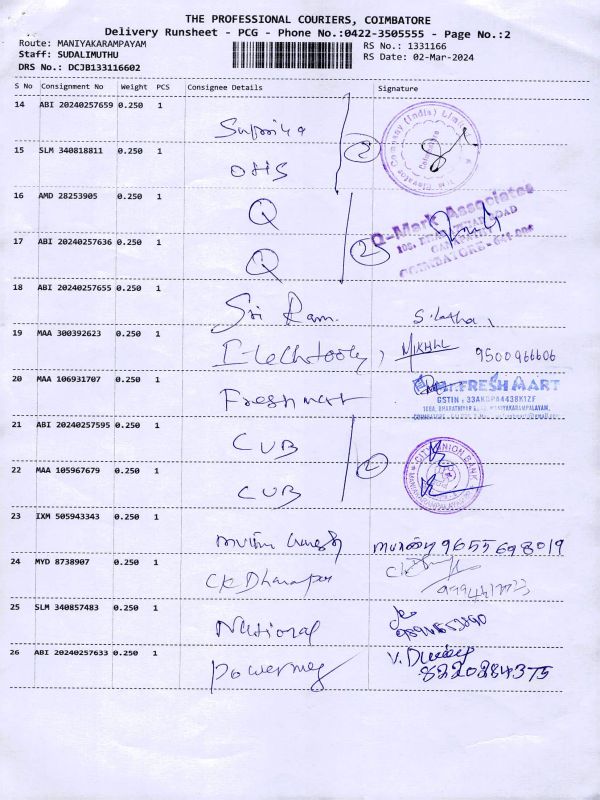 THE PROFESSIONAL COURIERS, COIMBATORE
Delivery Runsheet - PCG - Phone No.:0422-3505555 - Page No.:2
Route: MANIYAKARAMPAYAM
RS No.: 1331166
Staff: SUDALIMUTHU
RS Date: 02-Mar-2024
DRS No.: DCJB133116602
S No Consignment No Weight PCS Consignee Details Signature
14 ABI 20240257659 0.250 1
Supriya
15 SLM 340818811 0.250 1
OHS
2
16 AMD 28253905 0.250 1
Q
Q-Mark Associates
17 ABI 20240257636 0.250 1
Q
2
COIMBATORE - 641 006
18 ABI 20240257655 0.250 1
Sri Ram.
19 MAA 300392623 0.250 1
NIKHIL 9500966606
20 MAA 106931707 0.250 1
Freshmart
FRESH MART
GSTIN : 33AKDPA4438K1ZF
21 ABI 20240257595 0.250 1
CUB
CITY UNION BANK
22 MAA 105967679 0.250 1
CUB
2
23 IXM 505943343 0.250 1
9655698019
24 MYD 8738907 0.250 1
CK
25 SLM 340857483 0.250 1
National
26 ABI 20240257633 0.250 1
V. Dileep
8220284375